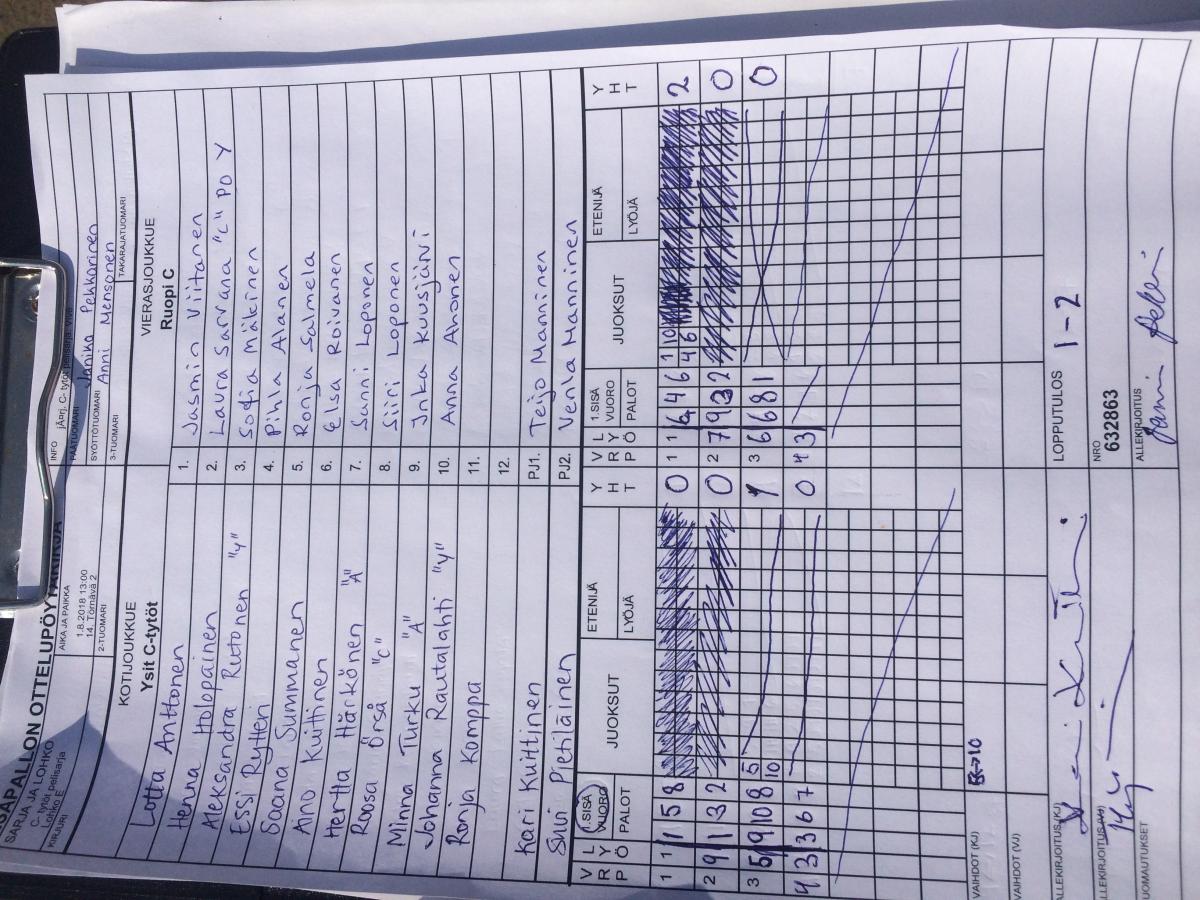 PESAPALLON OTTELUPÖYTÄKIRJA
SARJA JA LOHKO
C- tytöt pelisarja
Lohko E
AIKA JA PAIKKA
1.8.2018 13:00
14. Törnävä 2
INFO
jÄPrj. C- tytöt pelisarja
KIRJURI
2-TUOMARI
PÄÄTUOMARI
Janika Pekkarinen
SYÖTTÖTUOMARI
Anni Mensonen
3-TUOMARI
TAKARAJATUOMARI
KOTIJOUKKUE
Ysit C-tytöt
VIERASJOUKKUE
Ruopi C
Lotta Anttonen
1. Jasmin Viitanen
Henna Holopainen
2. Laura Sarvana "C" PO Y
Aleksandra Rutonen "Y"
3. Sofia Mäkinen
Essi Rytteri
4. Pihla Alanen
Saana Summanen
5. Ronja Salmela
Aino Kuittinen
6. Elsa Roivanen
Hertta Härkönen "A"
7. Sanni Loponen
Roosa Örså "C"
8. Siiri Loponen
Minna Turku "A"
9. Inka Kuusjärvi
Johanna Rautalahti "Y"
10. Anna Ahonen
Ronja Komppa
11.
12.
Kari Kuittinen
PJ1. Teijo Manninen
Suvi Pietiläinen
PJ2. Venla Manninen
V R P L Y Ö 1.SISÄ VUORO PALOT JUOKSUT ETENIJÄ LYÖJÄ Y H T
V R P L Y Ö 1.SISÄ VUORO PALOT JUOKSUT ETENIJÄ LYÖJÄ Y H T
1 1 1 5 8 0
1 1 6 4 6 1 10 4 6 2
2 9 1 3 2 0
2 7 9 3 2 0
3 5 9 10 8 5 10 1
3 6 6 8 1 0
4 3 3 6 7 0
4 3
VAIHDOT (KJ)
→10
VAIHDOT (VJ)
ALLEKIRJOITUS (KJ)
LOPPUTULOS 1-2
NRO
632863
ALLEKIRJOITUS
HUOMAUTUKSET